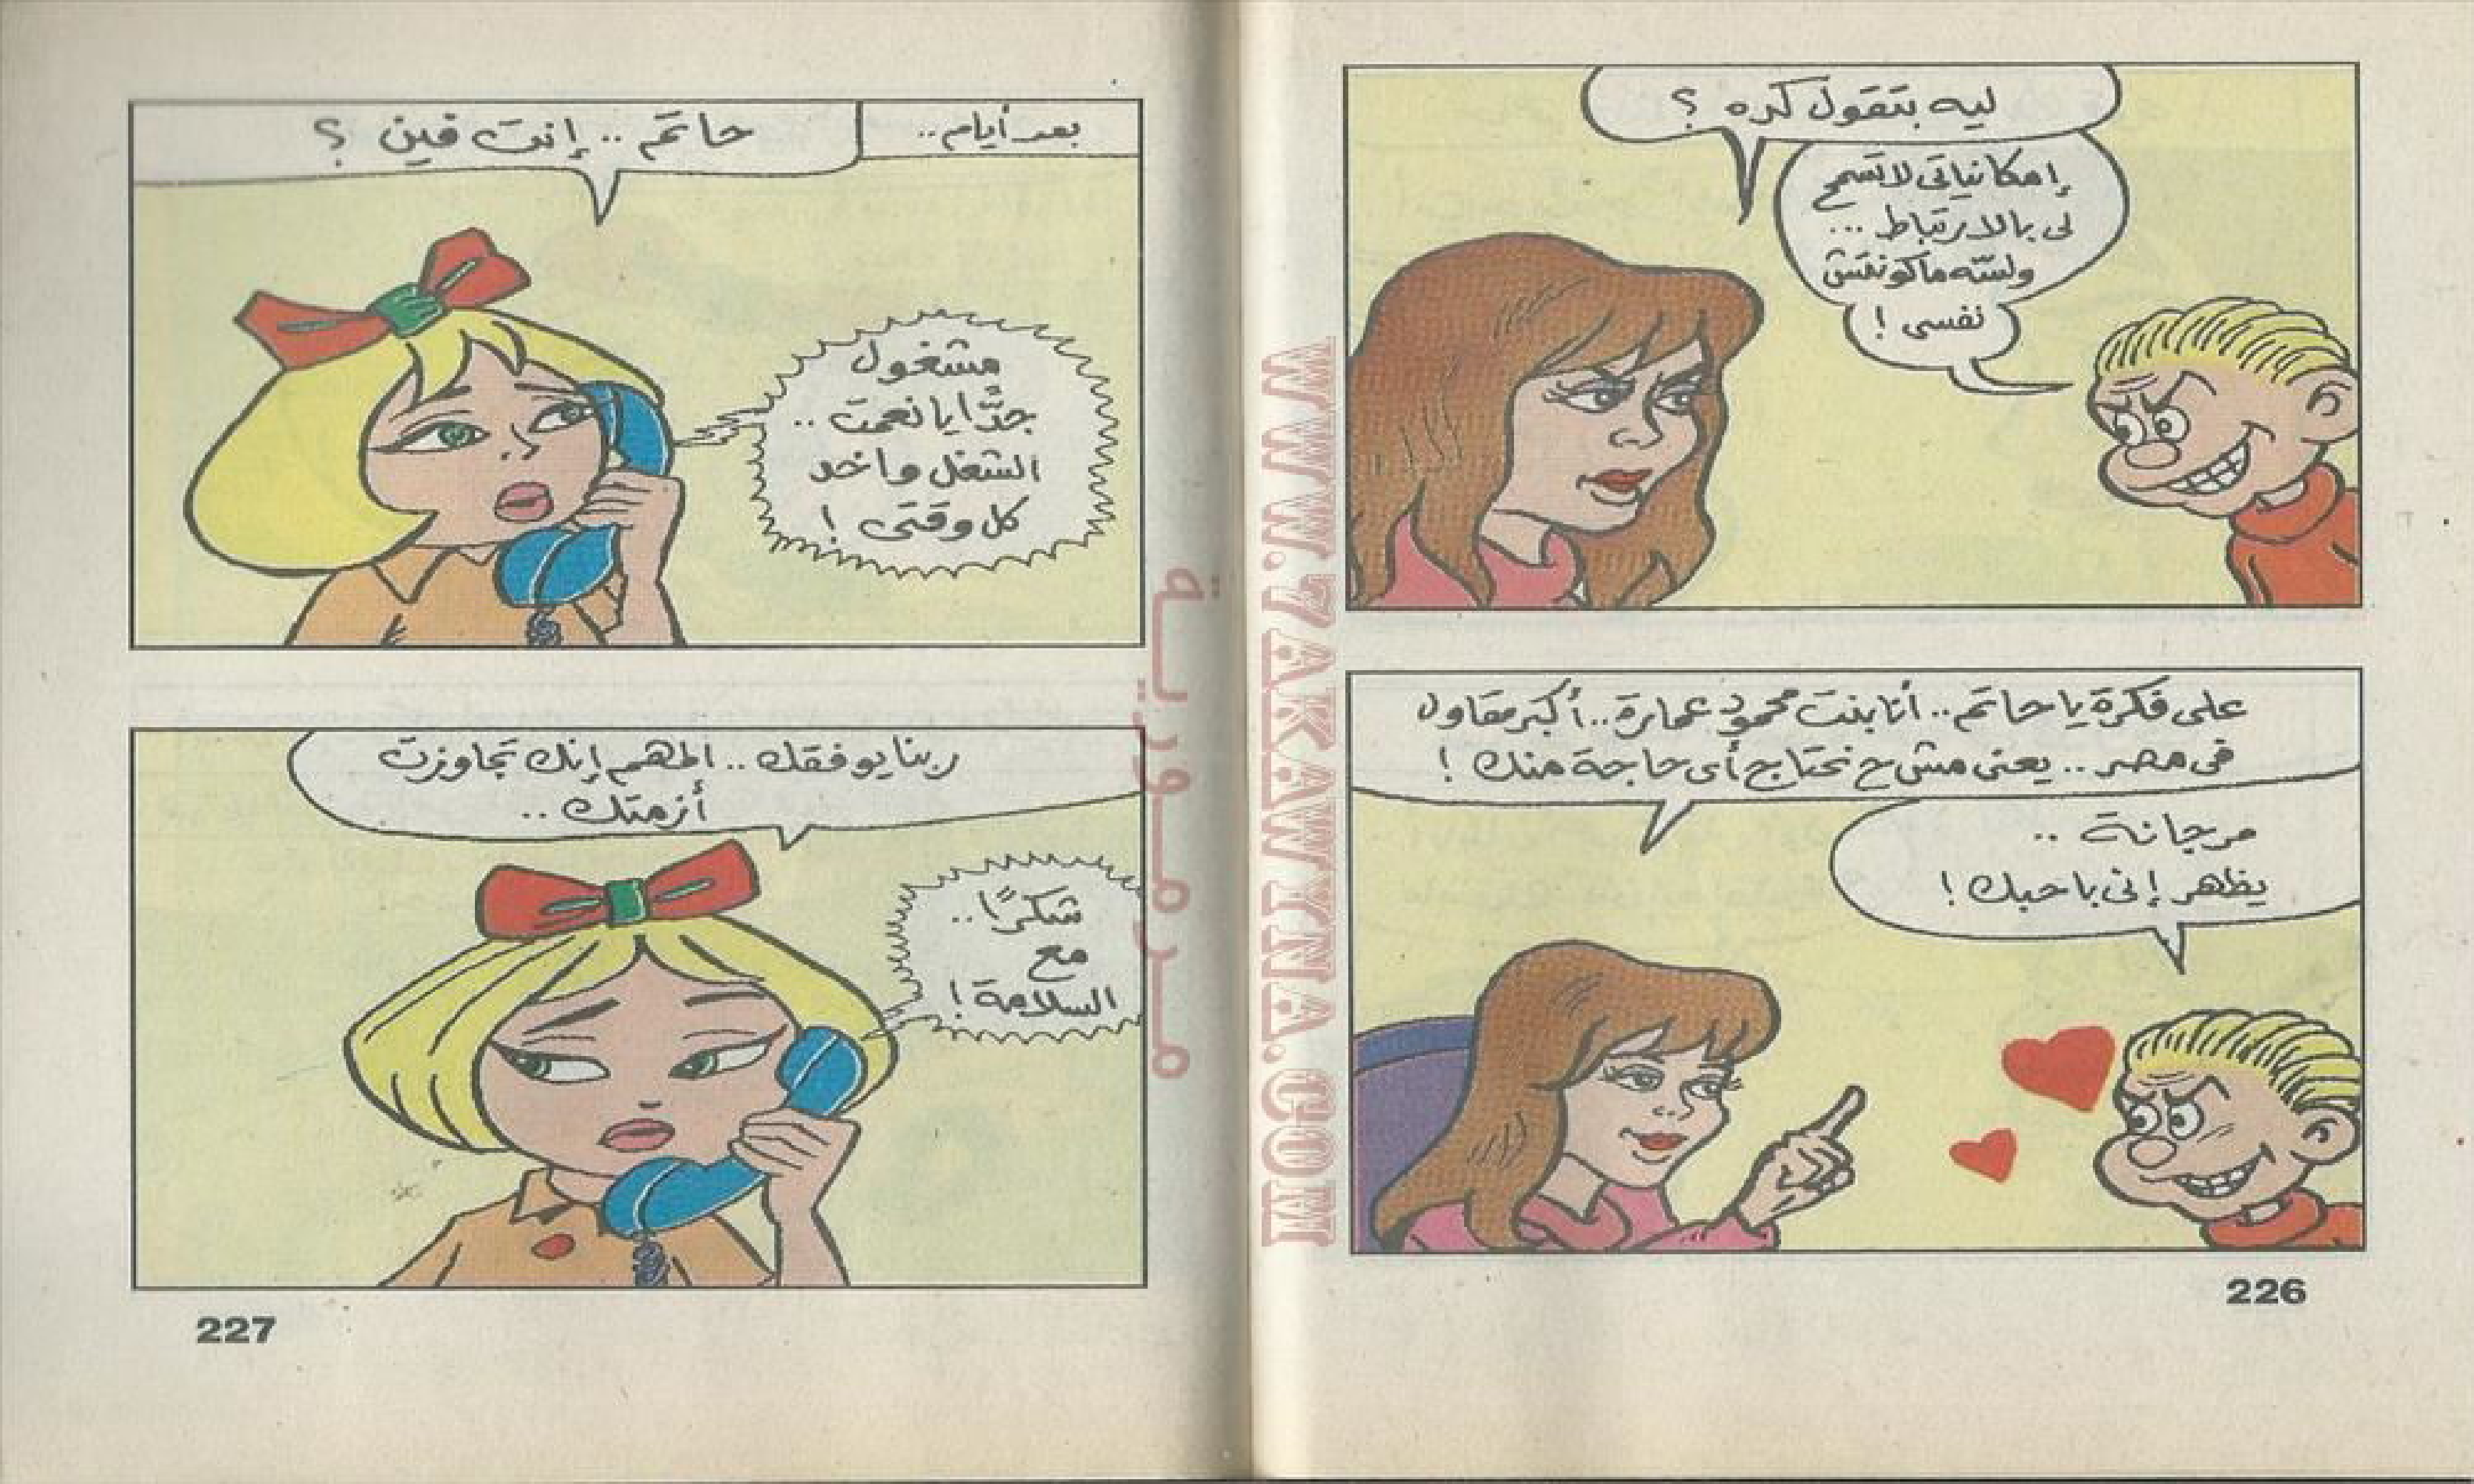 ليه بتقول كده ؟
إمكانياتى لا تسمح
لى بالارتباط ...
ولسّه ماكونتش
نفسى !
على فكرة يا حاتم .. أنا بنت محمود عمارة .. أكبر مقاول
فى مصر .. يعنى مش ح نحتاج أى حاجة منك !
مرجانة ..
يظهر إنى باحبك !
226
بعد أيام ..
حاتم .. إنت فين ؟
مشغول
جدًّا يا نعمت ..
الشغل واخد
كل وقتى !
ربنا يوفقك .. المهم إنك تجاوزت
أزمتك ..
شكرًا ..
مع
السلامة !
227
WWW.7AKAWYNA.COM
مرمورية